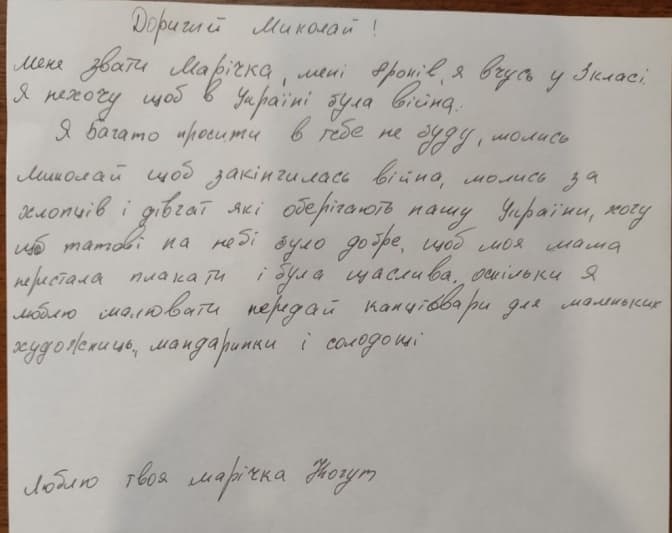 Дорогий Миколай!
Мене звати Марічка, мені 8 років, я вчусь у 3 класі.
Я нехочу щоб в Україні була війна.
Я багато просити в тебе не буду, молись
Миколай щоб закінчилась війна, молись за
хлопців і дівчат які оберігають нашу України, хочу
щоб татові на небі було добре, щоб моя мама
перестала плакати і була щаслива. оскільки я
люблю малювати передай канцтовари для маленьких
художниць, мандаринки і солодощі
Люблю твоя марічка